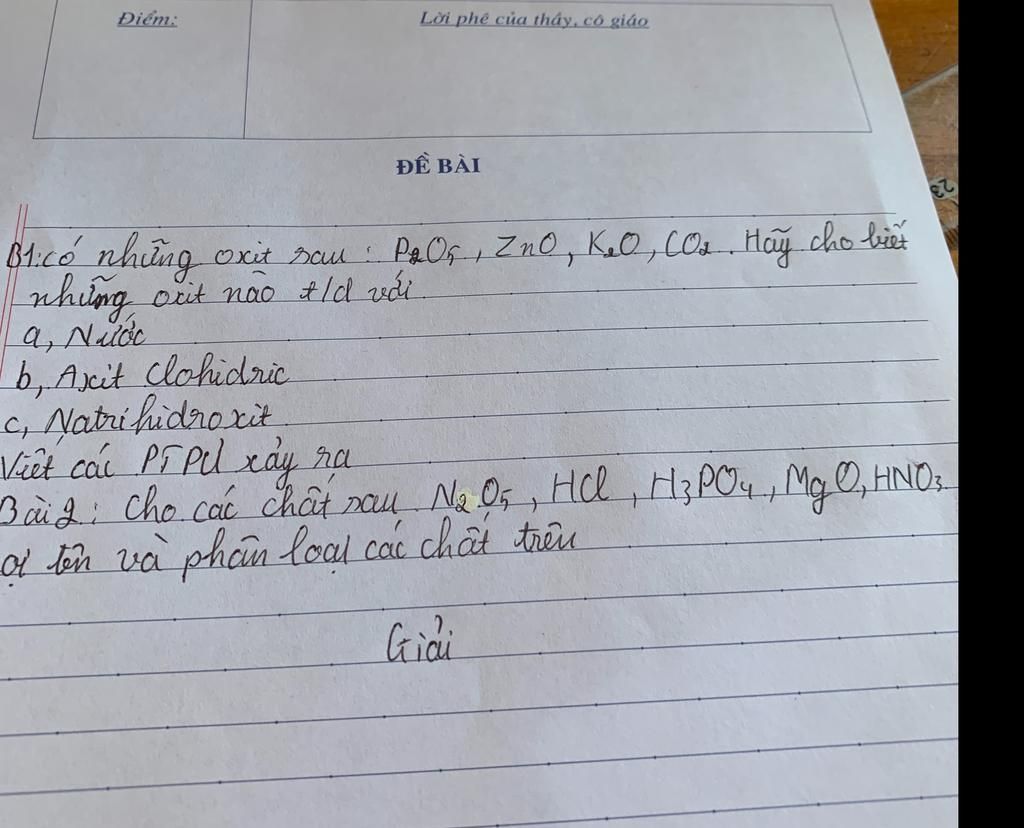 Điểm:
Lời phê của thầy, cô giáo
ĐỀ BÀI
B1: có những oxit sau: P2O5, ZnO, K2O, CO2. Hãy cho biết
những oxit nào t/d với
a, Nước
b, Axit Clohidric
c, Natri hidroxit
Viết các PTPU xảy ra
Bài 2: Cho các chất sau N2O5, HCl, H3PO4, MgO, HNO3
ọi tên và phân loại các chất trên
Giải
23